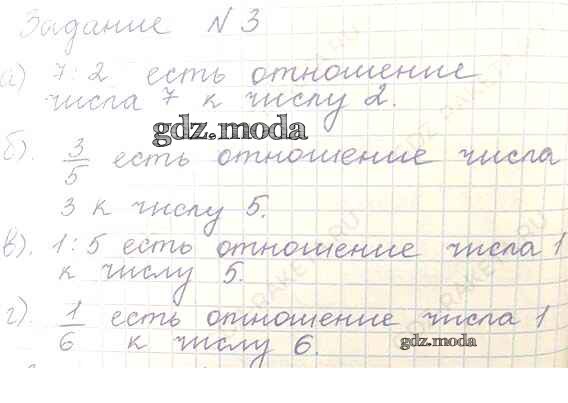 Задание N 3
а) 7:2 есть отношение
числа 7 к числу 2.
gdz.moda
б). 3/5 есть отношение числа
3 к числу 5.
в). 1:5 есть отношение числа 1
к числу 5.
г). 1/6 есть отношение числа 1
к числу 6.
gdz.moda